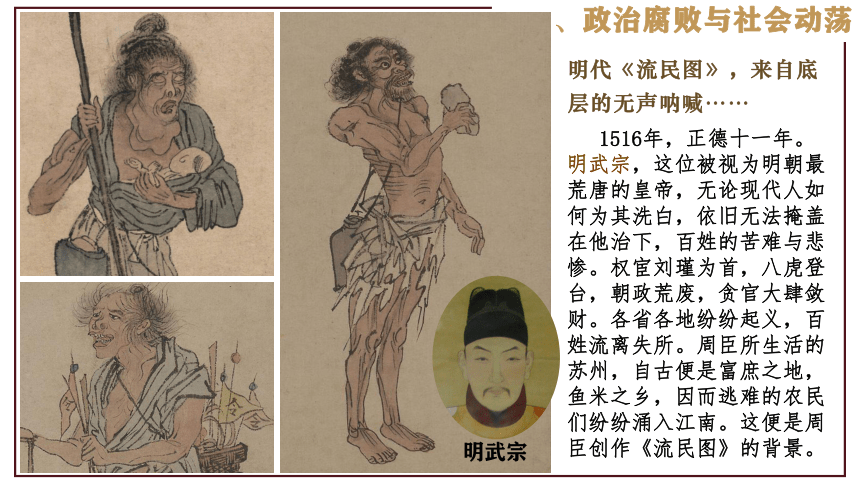 、政治腐败与社会动荡
明代《流民图》，来自底
层的无声呐喊……
1516年，正德十一年。
明武宗，这位被视为明朝最
荒唐的皇帝，无论现代人如
何为其洗白，依旧无法掩盖
在他治下，百姓的苦难与悲
惨。权宦刘瑾为首，八虎登
台，朝政荒废，贪官大肆敛
财。各省各地纷纷起义，百
姓流离失所。周臣所生活的
苏州，自古便是富庶之地，
鱼米之乡，因而逃难的农民
们纷纷涌入江南。这便是周
臣创作《流民图》的背景。
明武宗